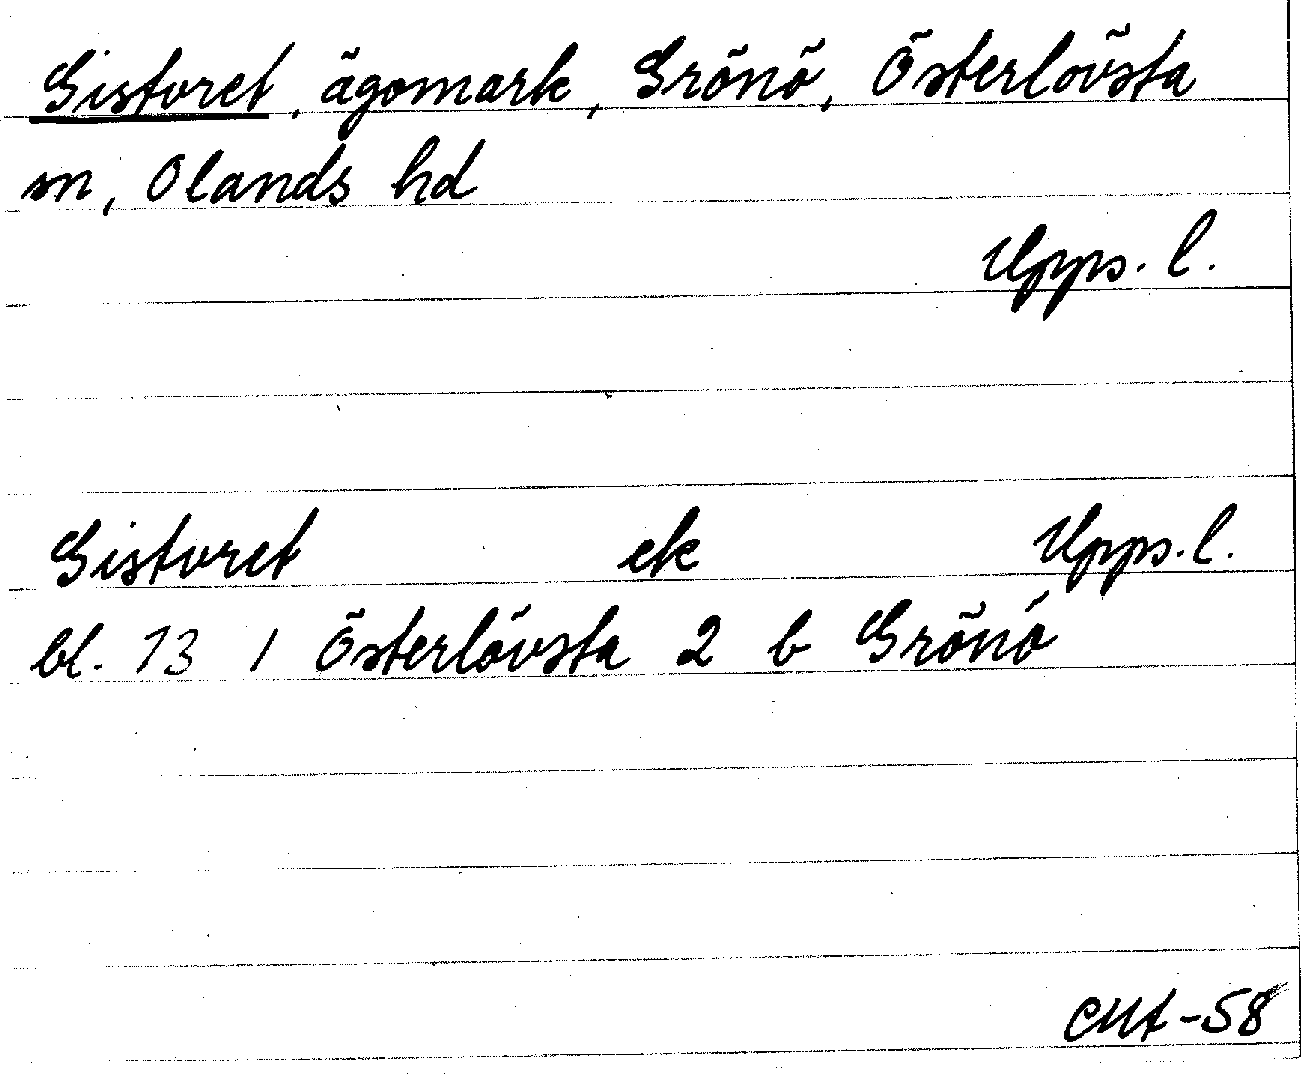 Gistvret, ägomark, Grönö, Österlövsta
sn, Olands hd
Upps. l.
Gistvret ek Upps. l.
bl. 13 1 Österlövsta 2 b Grönö
-58